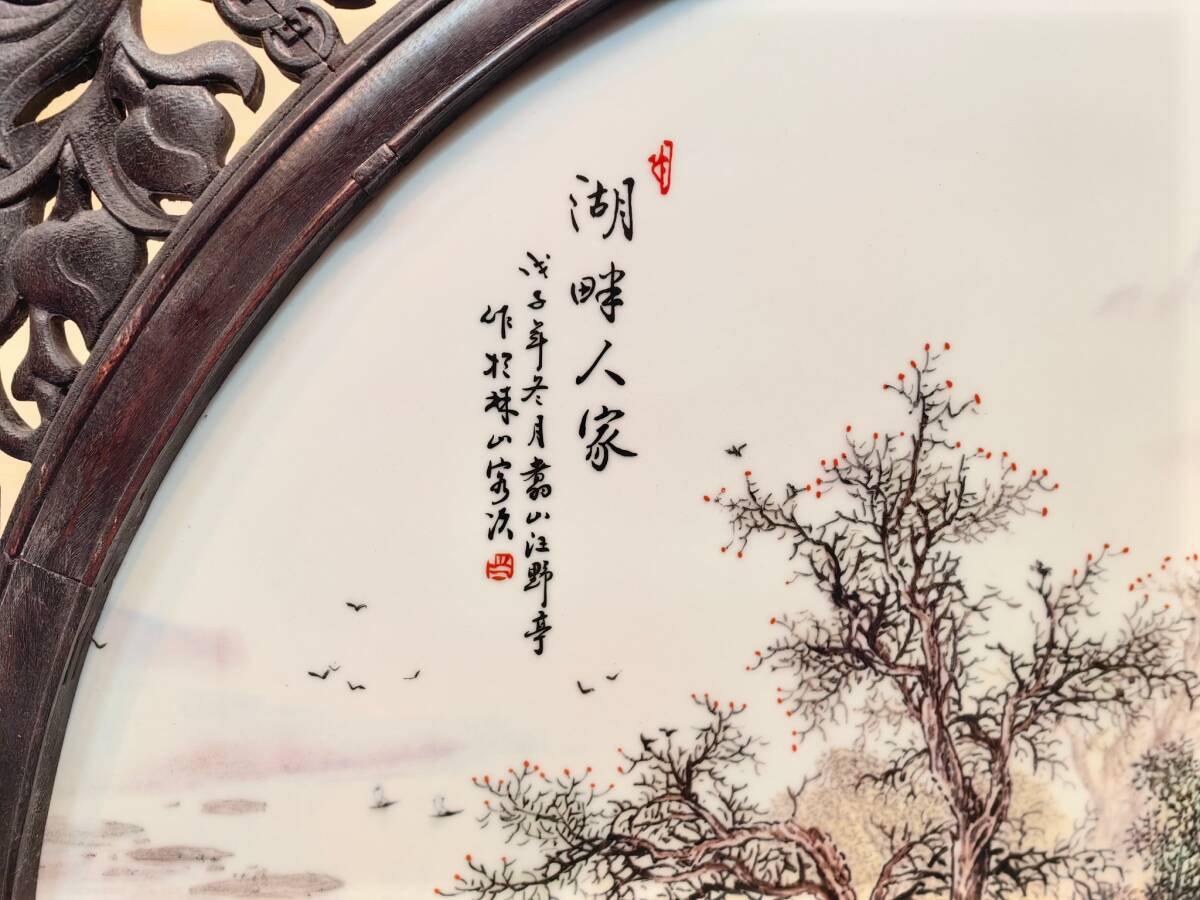 湖畔人家
戊子年冬月翥山汪野亭
作於珠山客次